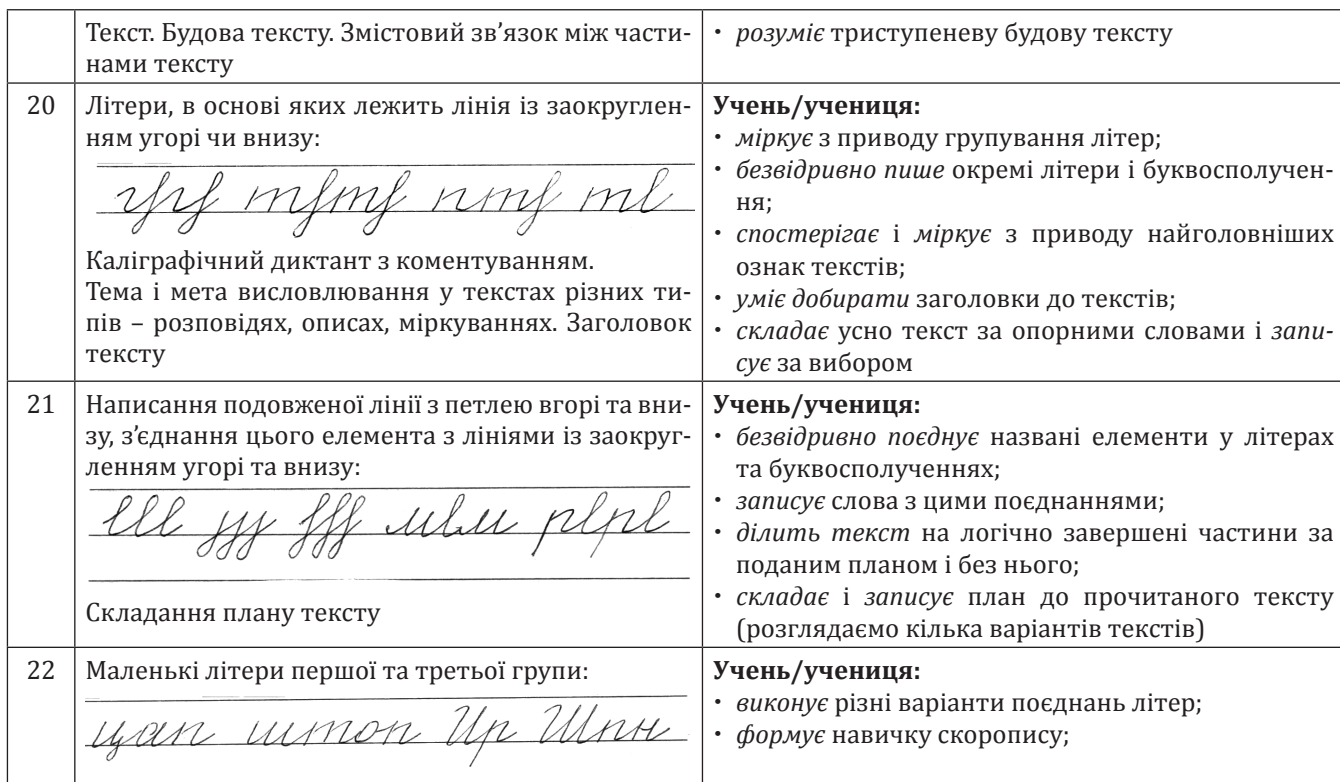 Текст. Будова тексту. Змістовий зв’язок між части-
нами тексту
• розуміє триступеневу будову тексту
20
Літери, в основі яких лежить лінія із заокруглен-
ням угорі чи внизу:
Каліграфічний диктант з коментуванням.
Тема і мета висловлювання у текстах різних ти-
пів – розповідях, описах, міркуваннях. Заголовок
тексту
Учень/учениця:
• міркує з приводу групування літер;
• безвідривно пише окремі літери і буквосполучен-
ня;
• спостерігає і міркує з приводу найголовніших
ознак текстів;
• уміє добирати заголовки до текстів;
• складає усно текст за опорними словами і запи-
сує за вибором
21
Написання подовженої лінії з петлею вгорі та вни-
зу, з’єднання цього елемента з лініями із заокруг-
ленням угорі та внизу:
Складання плану тексту
Учень/учениця:
• безвідривно поєднує названі елементи у літерах
та буквосполученнях;
• записує слова з цими поєднаннями;
• ділить текст на логічно завершені частини за
поданим планом і без нього;
• складає і записує план до прочитаного тексту
(розглядаємо кілька варіантів текстів)
22
Маленькі літери першої та третьої групи:
цап шпон Ир Шпн
Учень/учениця:
• виконує різні варіанти поєднань літер;
• формує навичку скоропису;